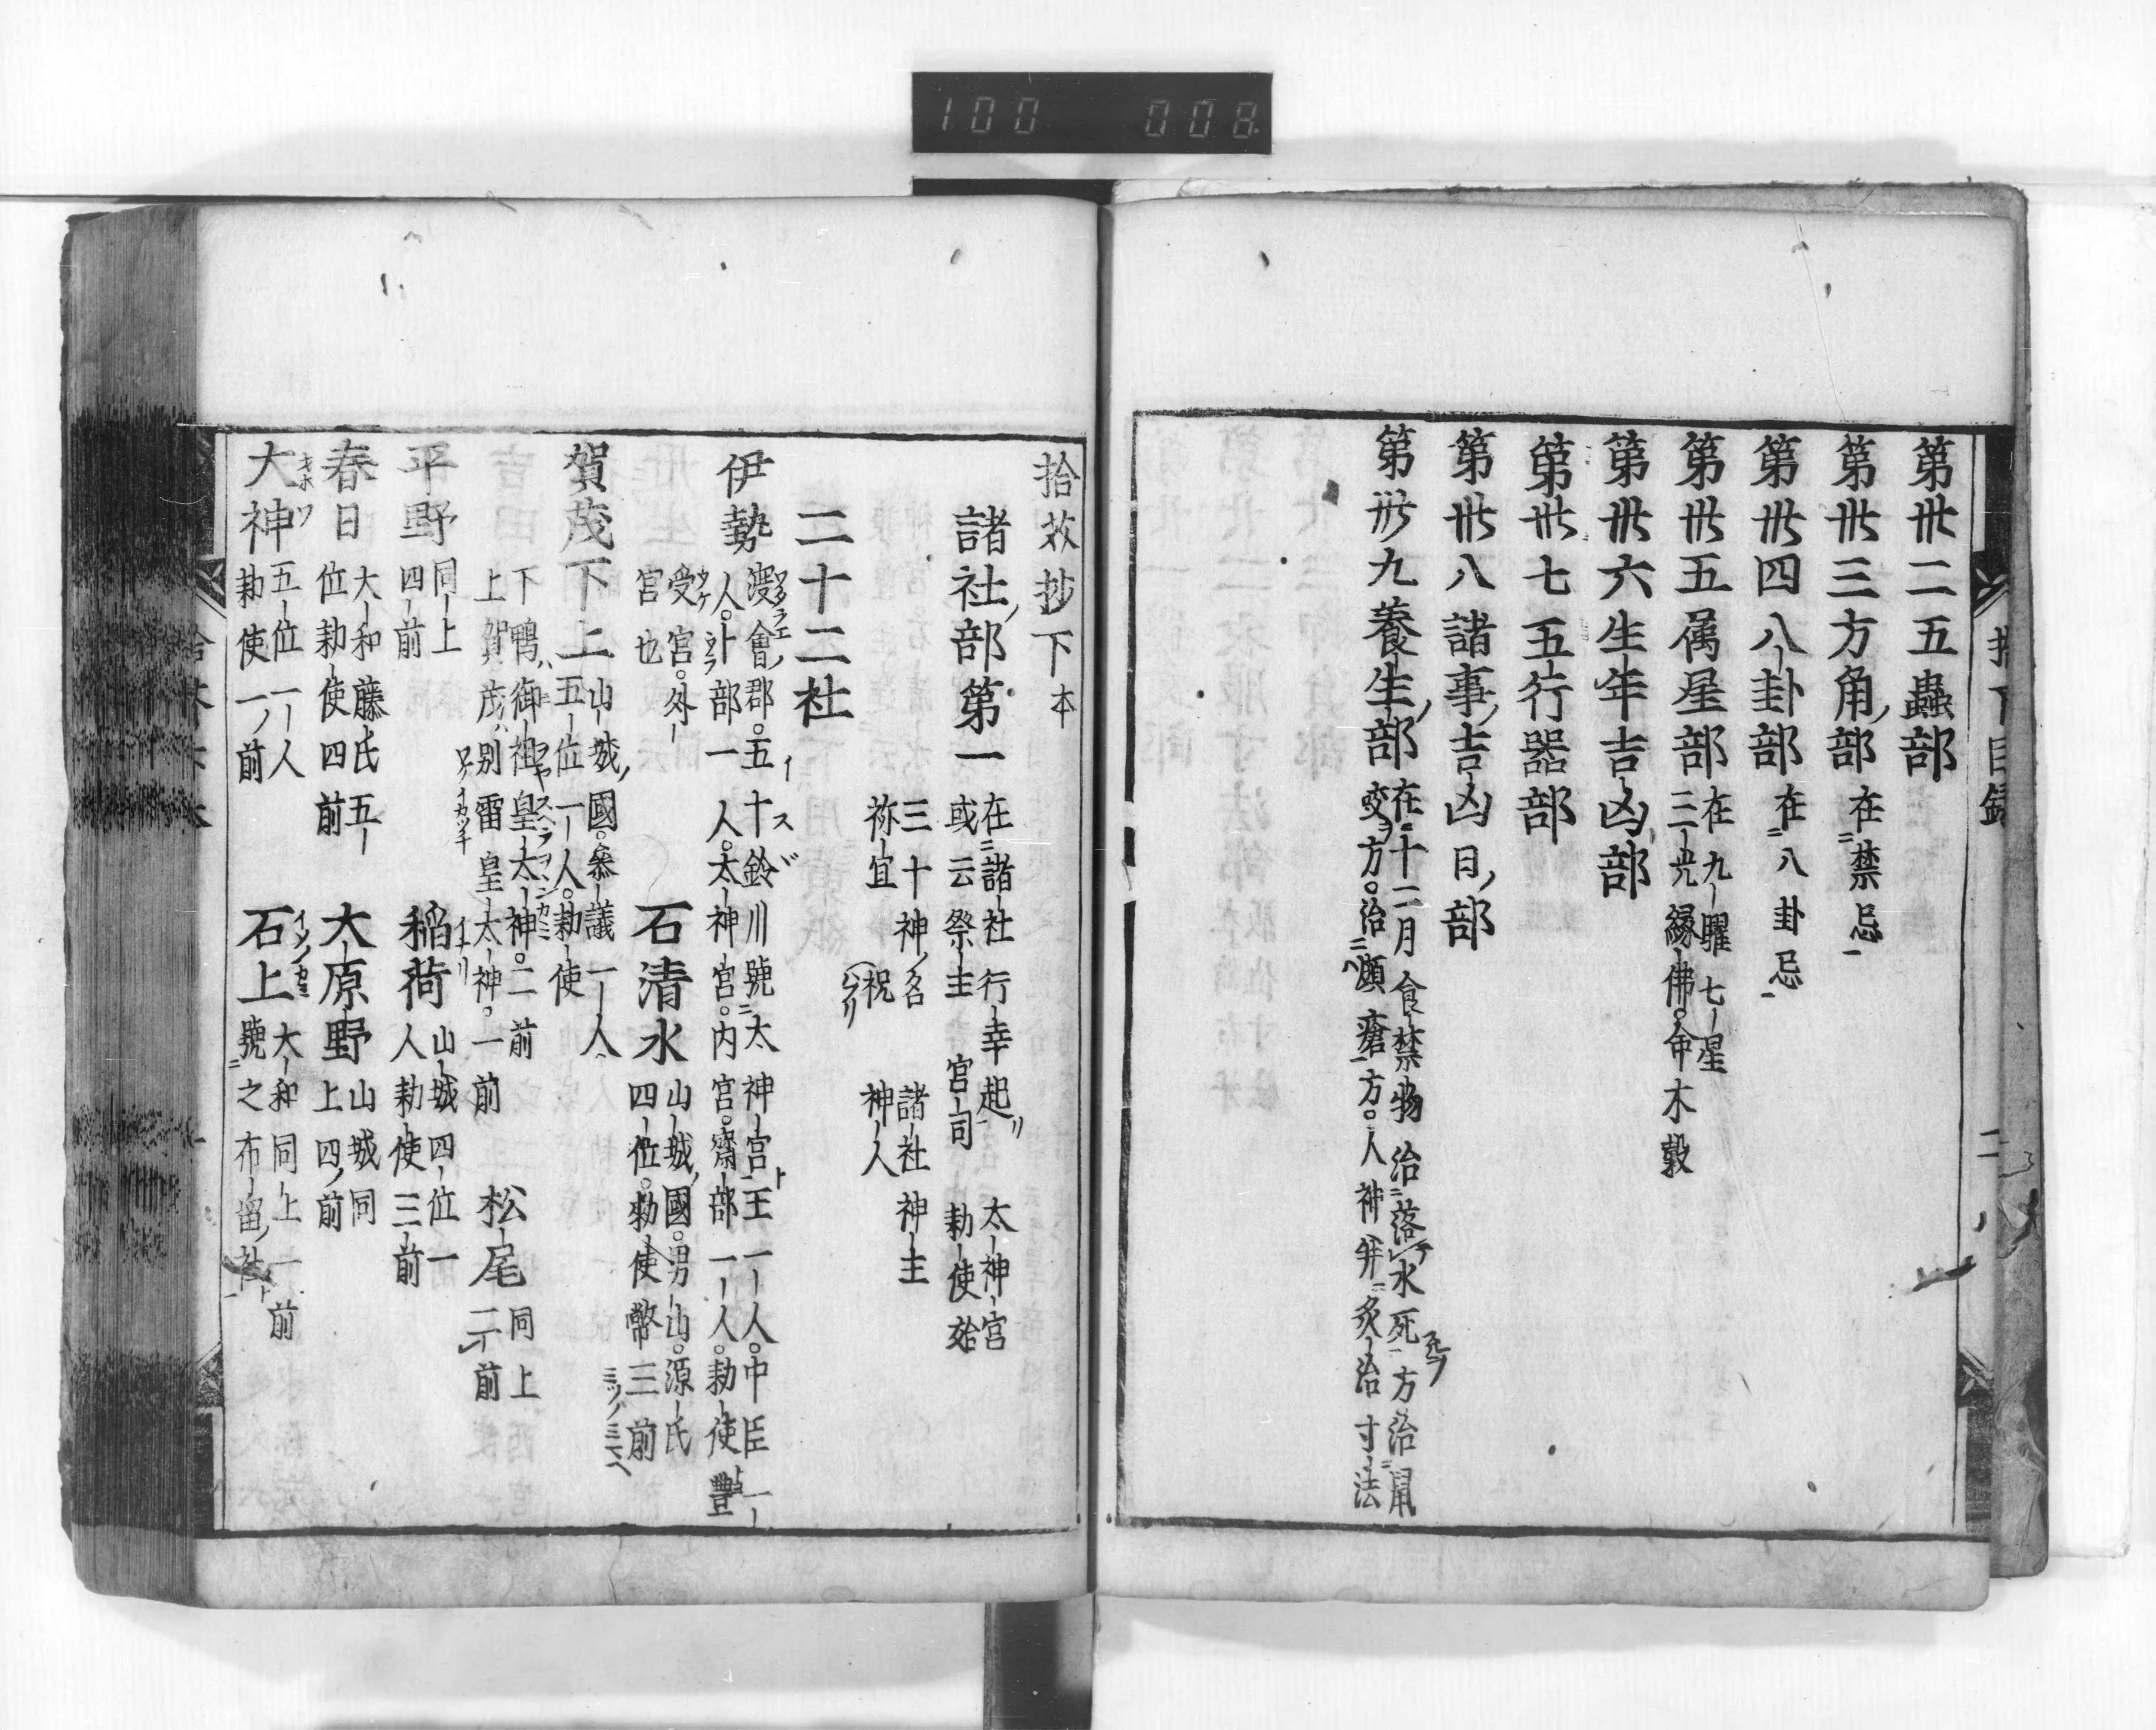 100 008
第卅二五蟲部
第卅三方角部 在禁忌
第卅四八卦部 在八卦忌
第卅五属星部 在九曜七星
三光縁佛。命木穀
第卅六生年吉凶部
第卅七五行器部
第卅八諸事吉凶日部
第卅九養生部 在十二月食禁物 治落水死方治鼠
瘻方。治癩瘡方。人神并灸治寸法
拾下目録 二
拾芥抄下本
諸社部第一 在諸社行幸起 太神宮
或云祭主 宮司 勅使
三十神名 諸社神主
祢宜 祝 神人
二十二社
伊勢 渡會郡。五十鈴川號太神宮王一人。中臣一
人。卜部一人。太神宮。内宮。齋部一人。勅使 豐
受宮。外
宮也
石清水 山城國。男山。源氏
四位。勅使幣三前
賀茂下上 山城國。參議一人
五位一人。勅使
下鴨御祖皇太神。二前
上賀茂別雷皇太神。一前
松尾 同上
二前
平野 同上
四前
稲荷 山城四位一
人勅使三前
春日 大和藤氏五
位勅使四前
大原野 山城同
上四前
大神 五位一人
勅使一前
石上 大和同上一前
號之布留社